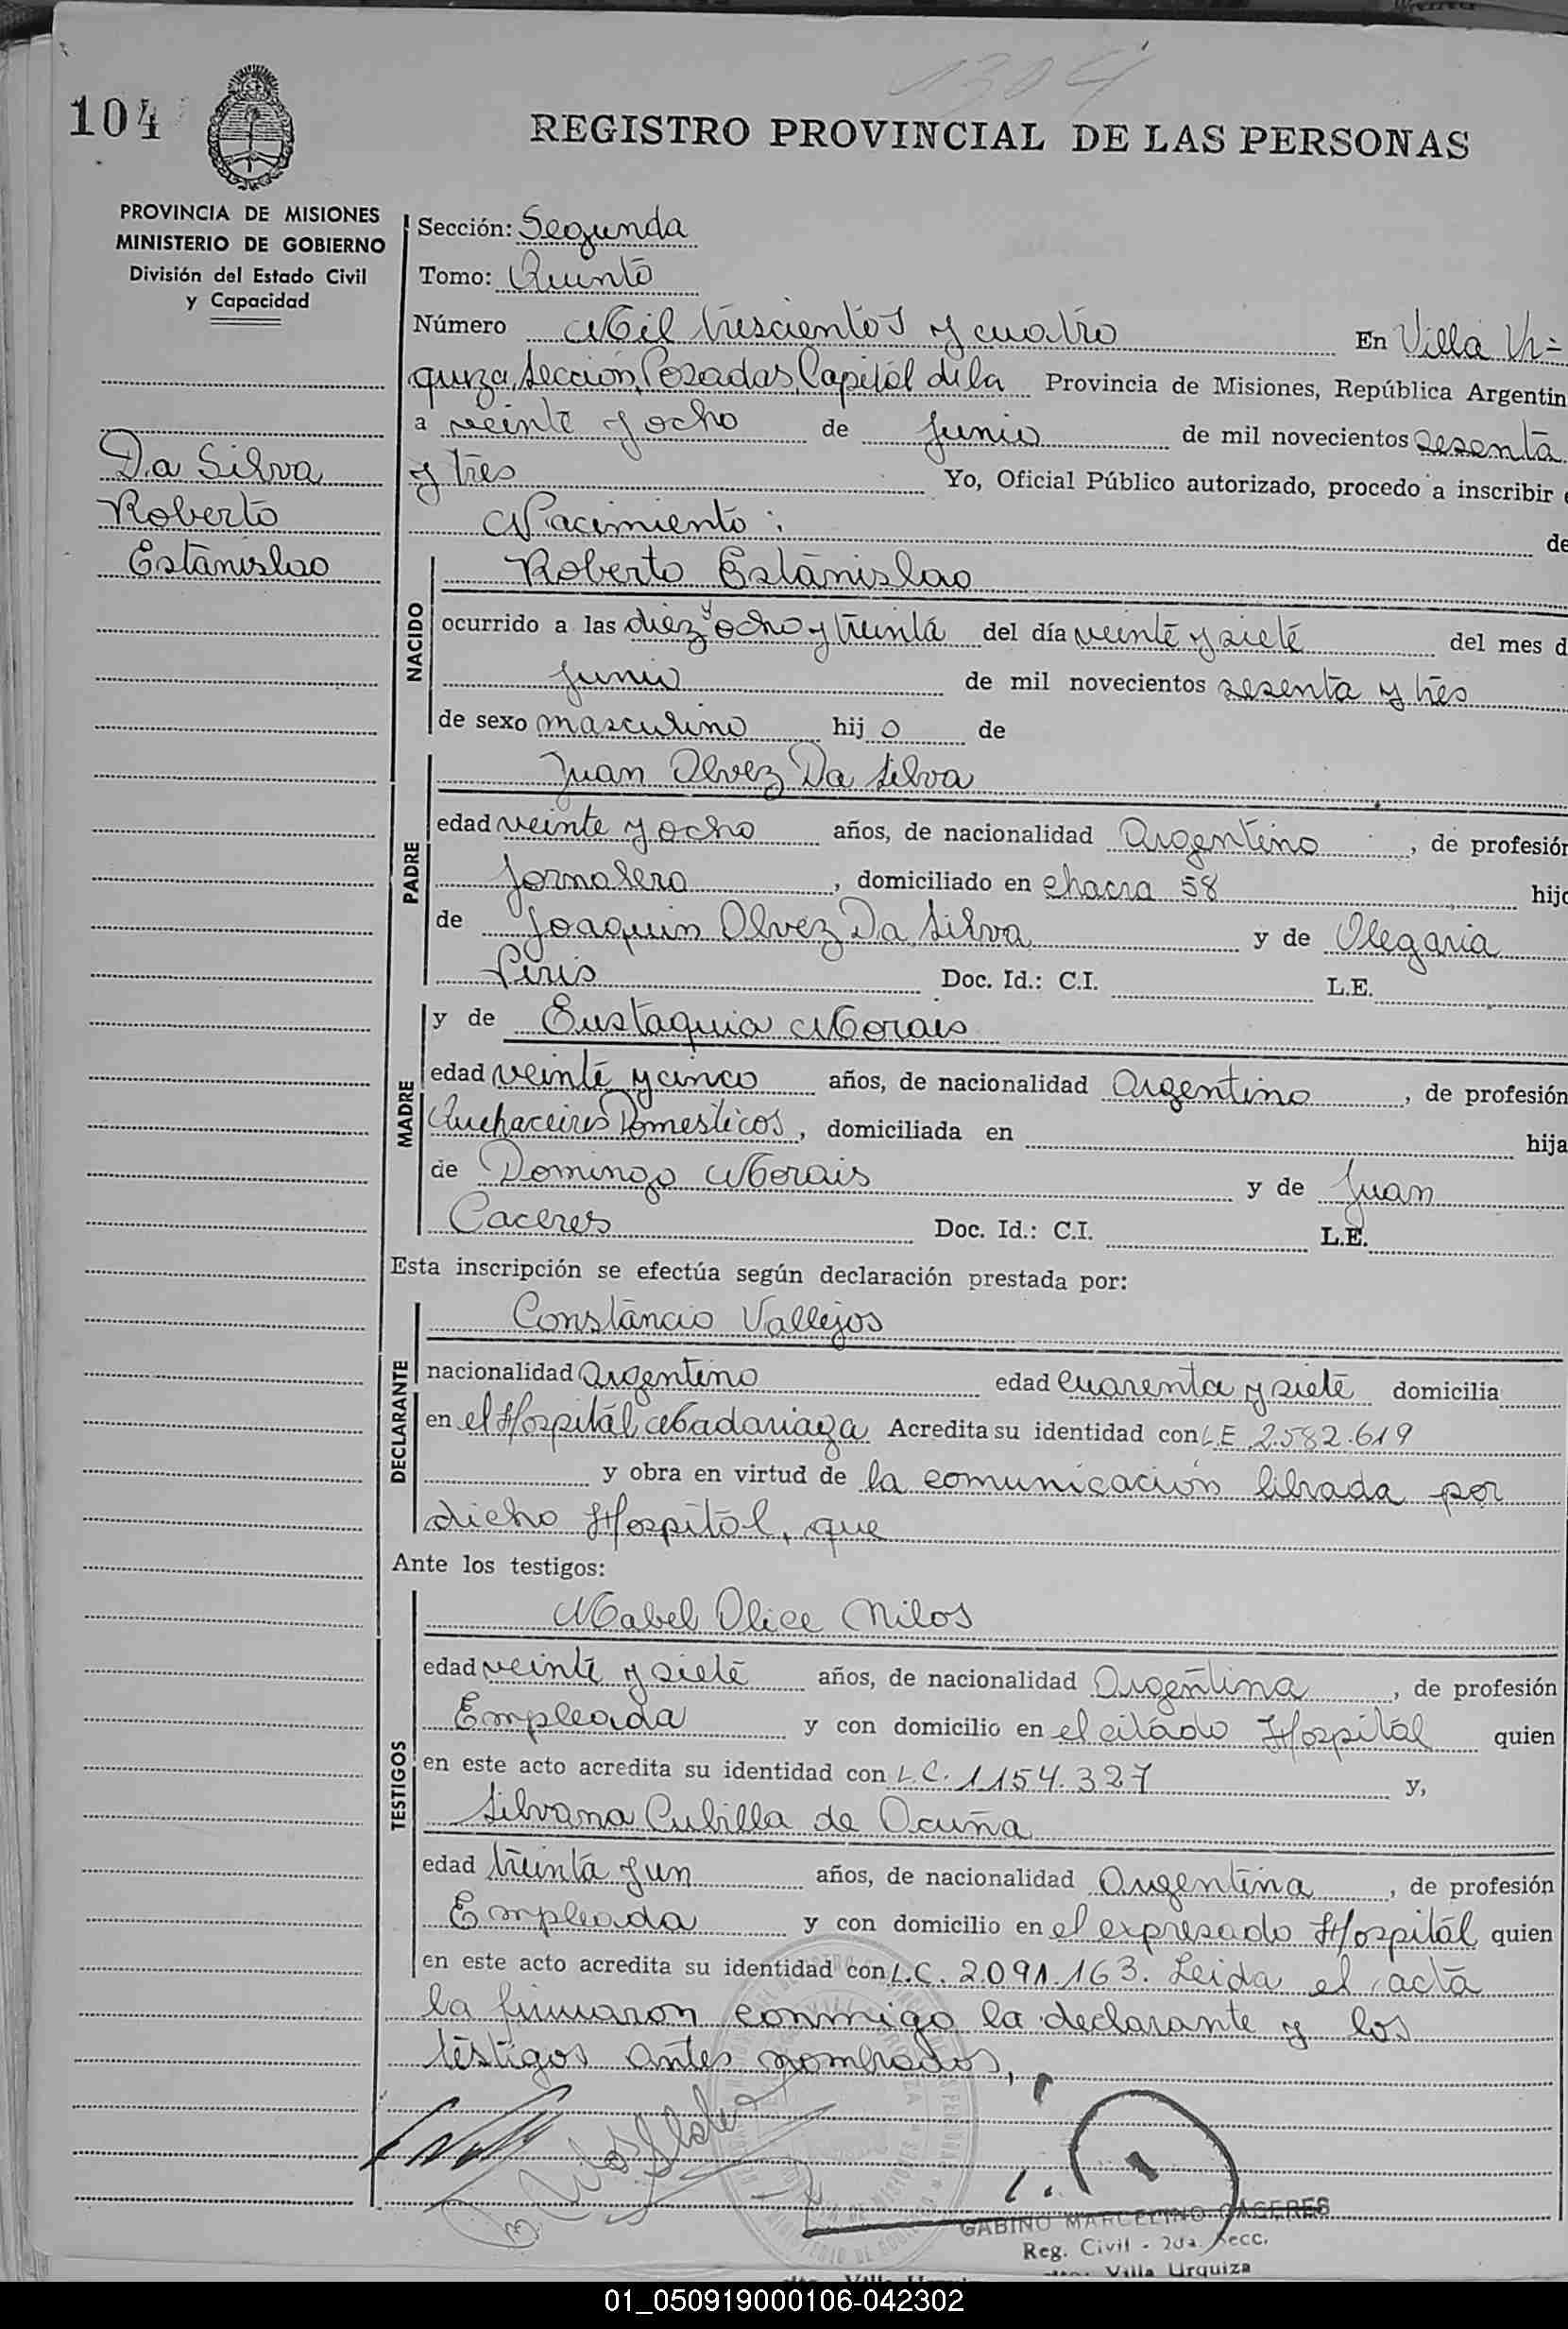 1304
104
REGISTRO PROVINCIAL DE LAS PERSONAS
PROVINCIA DE MISIONES
MINISTERIO DE GOBIERNO
División del Estado Civil
y Capacidad
Da Silva
Roberto
Estanislao
Sección: Segunda
Tomo: Quinto
Número Mil trescientos y cuatro En Villa Ur=
quiza, Sección, Posadas, Capital de la Provincia de Misiones, República Argentin
a veinte y ocho de Junio de mil novecientos sesenta
y tres Yo, Oficial Público autorizado, procedo a inscribir
Nacimiento: de
NACIDO
Roberto Estanislao
ocurrido a las diez y ocho y treinta del día veinte y siete del mes d
Junio de mil novecientos sesenta y tres
de sexo masculino hijo de
PADRE
Juan Alvez Da Silva
edad veinte y ocho años, de nacionalidad Argentino, de profesión
Jornalero, domiciliado en chacra 58 hijo
de Joaquin Alvez Da Silva y de Olegaria
Piris Doc. Id.: C.I. L.E.
MADRE
y de Eustaquia Morais
edad veinte y cinco años, de nacionalidad Argentino, de profesión
Quehaceires Domesticos, domiciliada en hija
de Domingo Morais y de Juan
Caceres Doc. Id.: C.I. L.E.
Esta inscripción se efectúa según declaración prestada por:
DECLARANTE
Constancio Vallejos
nacionalidad Argentino edad cuarenta y siete domicilia
en el Hospital Madariaga Acredita su identidad con L.E 2.582.619
y obra en virtud de la comunicación librada por
dicho Hospital, que
Ante los testigos:
TESTIGOS
Mabel Alice Milos
edad veinte y siete años, de nacionalidad Argentina, de profesión
Empleada y con domicilio en el citado Hospital quien
en este acto acredita su identidad con L.C. 1.154.327 y,
Silvana Cubilla de Acuña
edad treinta y un años, de nacionalidad Argentina, de profesión
Empleada y con domicilio en el expresado Hospital quien
en este acto acredita su identidad con L.C. 2.091.163. Leida el acta
la firmaron conmigo la declarante y los
testigos antes nombrados,
GABINO MARCELINO CACERES
Reg. Civil - 2da. Secc.
Villa Urquiza
01_050919000106-042302